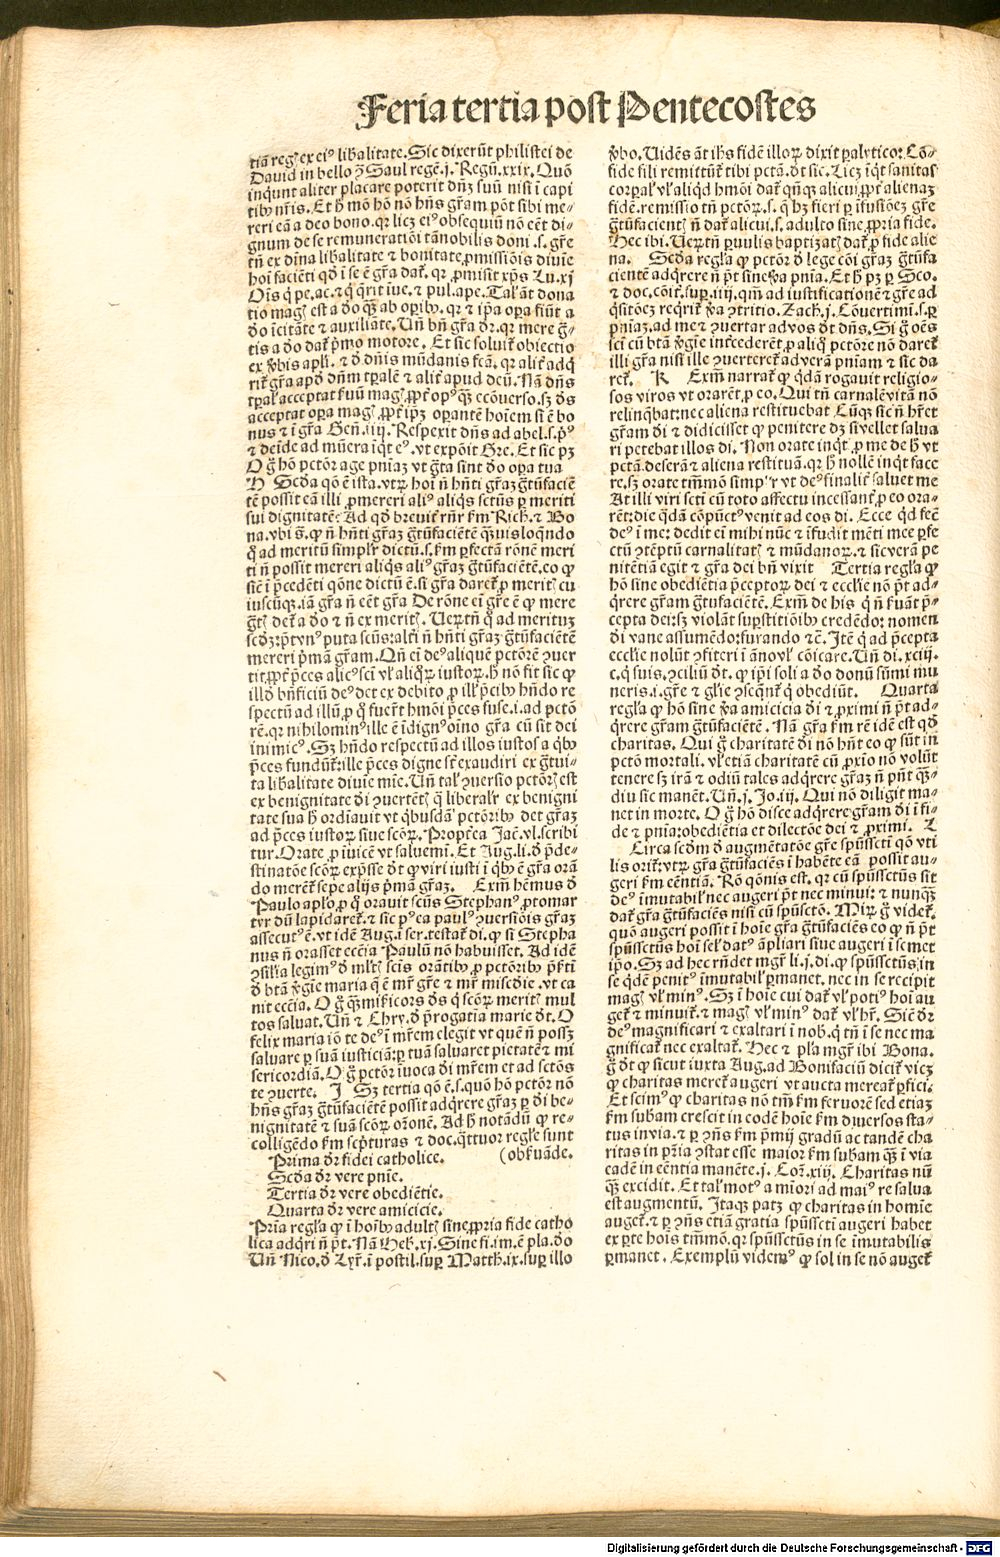 Feria tertia post Pentecostes
tiā regꝭ ex eiꝰ libꝉalitate. Sic dixerūt philistei de
David in bello ꝯ̄ Saul regē. j. Regū. xxix. Quō
inqunt aliter placare poterit dn̄ꝫ suū nisi ī capi
tibꝰ nr̄is. Et h̄ mō hō nō hn̄s gr̄am pōt sibi me-
reri eā a deo bono. qꝛ licꝫ eiꝰ obsequiū nō eēt di-
gnum de se remuneratiōi tā nobilis doni .s. gr̄e
tn̄ ex diīna libꝉalitate ⁊ bonitate ꝓmissiōis diuīe
hoī faciēti qđ ī se ē gr̄a dat̄. qꝛ ꝓmisit xp̄s Lu. xj
Oīs q̄ pe. ac. ⁊ q̄ q̄rit īue. ⁊ pul. ape. Tal' āt dona
tio magꝭ est a đo q̄ꝫ ab oꝑibꝰ. qꝛ ⁊ ip̄a oꝑa fiūt a
đo īcitāte ⁊ auxiliāte. Un̄ bn̄ gr̄a dr̄. qꝛ mere gͣ-
tis a đo dat̄ pͥmo motore. Et sic soluit̄ obiectio
ex v̄bis apl'i. ⁊ đ dn̄is mūdanis fcā. qꝛ alit̄ adq̄
rit̄ gr̄a apđ dn̄m tꝑalē ⁊ alit̄ apud deū. Nā dn̄s
tꝑal' acceptat s̄uū magꝭ ꝓpt̄ opꝰ q̄ꝫ ecōuerso. sꝫ đs
acceptat oꝑa magꝭ ꝓpt̄ ip̄ꝫ oꝑantē hoīem si ē bo
nus ⁊ ī gr̄a Gen̄. iiij. Respexit dn̄s ad abel. s. pͥꝰ
⁊ deīde ad mūera iq̄t eꝰ. vt expōit Gre. Et sic pꝫ
O g̊ hō pctōr age pniāꝫ vt gͣta sint đo oꝑa tua
H Scđa qō ē ista. vtꝝ hoī n̄ hn̄ti gr̄aꝫ gͣtūfaciē
tē possit eā illi ꝓmereri aliꝰ aliqͥs sctūs ꝑ meriti
sui dignitatē. Ad qđ breuit̄ rn̄r ẜm Rich. ⁊ Bo
na. vbi s̄. ꝙ n̄ hn̄ti gr̄aꝫ gͣtūfaciētē quis loqn̄do
q̊ ad meritū simpl'r dictū. s. ẜm ꝑfectā rōnē meri
ti n̄ possit mereri aliqͥs aliꝰ gr̄aꝫ gͣtūfaciētē. eo ꝙ
sic̄ ī pͣcedēti qōne dictū ē. si gr̄a daret̄ ꝓ meritꝭ cu
iuscūqꝫ. iā gr̄a n̄ eēt gr̄a De rōne eī gr̄e ē ꝙ mere
gͣtꝭ det̄ a đo ⁊ n̄ ex meritꝭ. Ueꝝtn̄ q̊ ad merituꝫ
scđꝫ: pͥvnꝰ puta scūs: alt̄i n̄ hn̄ti gr̄aꝫ gͣtūfaciētē
mereri pͥmā gr̄am. Qn̄ eī deꝰ aliquē pctōrē ꝯuer
tit ꝓpt̄ pͣces alicꝰ sci vl' aliqͦꝝ iustoꝝ. h̄ nō fit sic ꝙ
illđ bn̄ficiū deꝰ det ex debito ꝓ ill' pͣcibꝰ hn̄do re
spectū ad illū ꝓ q̊ fuer̄t hmōi pͣces fuse. i. ad pctō
rē. qꝛ nihilominꝰ ille ē īdignꝰ oīno gr̄a cū sit dei
inimicꝰ. Sꝫ hn̄do respectū ad illos iustos a qͥbꝰ
pͣces fundūt̄: ille pͣces digne st̄ exaudiri ex gͣtui-
ta libꝉalitate diuīe mīe. Un̄ tal' ꝯuersio pctōrꝭ est
ex benignitate đi ꝯuertētꝭ q̄ liberal'r ex benigni
tate sua h̄ ordiauit vt qͥbusdā pctōribꝰ det gr̄aꝫ
ad pͣces iustoꝝ siue scōꝝ. Propt̄ea Jac̄. vl. scribi
tur. Orate ꝓ iuicē vt saluemī. Et Aug. li. đ pͣde-
stinatōe scōꝝ exp̄sse đt ꝙ viri iusti ī qͥbꝰ ē gr̄a orā
do meret̄ sepe alijs pͥmā gr̄aꝫ. Exm̄ hēmus đ
Paulo apl'o ꝓ q̊ orauit scūs Stephanꝰ ꝓtomar
tyr dū lapidaret̄. ⁊ sic pꝰ ea paulꝰ ꝯuersiōis gr̄aꝫ
assecutꝰ ē. vt idē Aug. ī ser. testat̄ di. ꝙ si Stepha
nus n̄ orasset ecc̄ia Paulū nō habuisset. Ad idē
ꝯsil'ia legimꝰ đ ml'tꝭ scīs orātibꝰ ꝓ pctōribꝰ pͣser̄tī
đ btā v̄gīe maria q̄ ē mr̄ gr̄e ⁊ mr̄ miscđie. vt ca
nit ecc̄ia. O g̊ q̄ꝫ mis̄icors đs q̄ scōꝝ meritꝭ mul
tos saluat. Un̄ ⁊ Chry. đ pͣrogatia marie đt. O
felix maria iō te deꝰ ī mr̄em elegit vt quē n̄ possꝫ
saluare ꝑ suā iusticiā: ꝑ tuā saluaret pietatē ⁊ mi
sericordiā. O g̊ pctōr iuoca đi mr̄em et ad sctōs
te ꝯuerte. J Sꝫ tertia qō ē. s. quō hō pctōr nō
hn̄s gr̄aꝫ gͣtūfaciētē possit adqͥrere gr̄aꝫ ꝑ đi be-
nignitatē ⁊ suā scōꝝ or̄onē. Ad h̄ notādū ꝙ re-
colligēdo ẜm scͥpturas ⁊ doc. q̄ttuor regl'e sunt
(obẜuāde.
Prima dr̄ fidei catholice.
Scđa dr̄ vere pnīe.
Tertia dr̄ vere obediētie.
Quarta dr̄ vere amicicie.
Pͥma regl'a ꝙ ī hoībꝰ adultꝭ sine ꝓpria fide catho
lica adqͥri n̄ pōt. Nā Heb. xj. Sine fi. im. ē pla. đo
Un̄ Nico. đ Lyr̄. ī postil. suꝑ Matth. ix. suꝑ illo
v̄bo. Uidēs āt ihs fidē illoꝝ dixit ꝑalytico: Cō-
fide fili remittūt̄ tibi pctā. đt sic. Licꝫ iq̄t sanitas
corꝑal' vl' aliqđ hmōi dat̄ qn̄qꝫ alicui ꝓpt̄ alienaꝫ
fidē. remissio tn̄ pctōꝝ. s. q̄ hꝫ fieri ꝑ īfusiōeꝫ gr̄e
gͣtūfacientꝭ n̄ dat̄ alicui. s. adulto sine ꝓpria fide.
Hec ibi. Ueꝝtn̄ ꝑuulis baptizatꝭ dat̄ ꝓ fide alie
na. Scđa regl'a ꝙ pctōr đ lege cōi gr̄aꝫ gͣtūfa
cientē adqͥrere n̄ pōt sine v̄a pnia. Et h̄ pꝫ ꝑ Sco.
⁊ doc. cōit̄. suꝑ. iiij. qm̄ ad iustificationē ⁊ gr̄e ad
qͥsitōeꝫ reqͥrit̄ v̄a ꝯtritio. Zach. j. Cōuertimī. s. ꝑ
pniaꝫ. ad me ⁊ ꝯuertar ad vos đt dn̄s. Si g̊ oēs
scī cū btā v̄gīe intercēderēt ꝓ aliq̊ pctōre nō daret̄
illi gr̄a nisi ille ꝯuerteret̄ ad verā pniam ⁊ sic da
ret̄. K Exm̄ narrat̄ ꝙ qͥdā rogauit religio-
sos viros vt orarēt ꝓ eo. Qui tn̄ carnalē vitā nō
relinq̄bat: nec aliena restituebat Cūqꝫ sic n̄ hr̄et
gr̄am đi ⁊ didicisset ꝙ penitere dꝫ si vellet salua
ri petebat illos di. Non orate inqͥt ꝓ me de h̄ vt
pctā. deserā ⁊ aliena restituā. qꝛ h̄ nollē inqͥt face
re. sꝫ orate tm̄mō simpl'r vt deꝰ finalit̄ saluet me
At illi viri scti cū toto affectu incessant̄ ꝓ eo ora-
rēt: die qͣdā cōpūctꝰ venit ad eos di. Ecce qͥd fec̄
deꝰ ī me: dedit eī mihi nūc ⁊ īfudit mēti mee ꝑfe
ctū ꝯtēptū carnalitatꝭ ⁊ mūdanoꝝ. ⁊ sic verā pe
nitētiā egit ⁊ gr̄a dei bn̄ vixit Tertia regl'a ꝙ
hō sine obediētia pͣceptoꝝ dei ⁊ ecclīe nō pōt ad-
qͥrere gr̄am gͣtūfaciētē. Exm̄ de his q̄ n̄ ẜuāt pͣ-
cepta dei: sꝫ violāt suꝑstitiōibꝰ credēdo: nomen
đi vane assumēdo: furando ⁊c̄. Itē q̊ ad pͣcepta
ecclīe nolūt ꝯfiteri ī āno vl' cōicare. Un̄ di. xciij.
c. q̄ suis. ꝯciliū đt. ꝙ ip̄i soli a đo donū sūmi mu
neris. i. gr̄e ⁊ gl'ie ꝯseqūt̄ q̄ obediūt. Quarta
regl'a ꝙ hō sine v̄a amicicia đi ⁊ ꝓximi n̄ pōt ad-
qͥrere gr̄am gͣtūfaciētē. Nā gr̄a ẜm rē idē est qđ
charitas. Qui g̊ charitatē đi nō hn̄t eo ꝙ sūt in
pctō mortali. vl' etiā charitatē cū ꝓxīo nō volūt
tenere sꝫ irā ⁊ odiū tales adqͥrere gr̄aꝫ n̄ pn̄t q̄ꝫ-
diu sic manēt. Un̄. j. Jo. iij. Qui nō diligit ma-
net in morte. O g̊ hō disce adqͥrere gr̄am đi ī fi-
de ⁊ pnia: obediētia et dilectōe dei ⁊ ꝓximi. L
Circa scđm đ augmētatōe gr̄e spūsscti qō vti
lis orit̄. vtꝝ gr̄a gͣtūfaciēs ī habēte eā possit au-
geri ẜm eēntiā. Rō qōnis est. qꝛ cū spūssctūs sit
deꝰ īmutabil' nec augeri pōt nec minui: ⁊ nunqͣꝫ
dat̄ gr̄a gͣtūfaciēs nisi cū spūsctō. Mirū g̊ videt̄.
quō augeri possit ī hoīe gr̄a gͣtūfaciēs eo ꝙ n̄ pōt
spūssctūs hoī sel' datꝰ āpliari siue augeri ī semet
ip̄o. Sꝫ ad hec rn̄det mgr̄ li. j. di. ꝙ spūssctūs in
se qͥdē penitꝰ īmutabil' ꝑmanet. nec in se recipit
magꝭ vl' minꝰ. Sꝫ ī hoīe cui dat̄ vl' potiꝰ hoī au
get̄ ⁊ minuit̄. ⁊ magꝭ vl' minꝰ dat̄ vl' hr̄. Sic̄ dr̄
deꝰ magnificari ⁊ exaltari ī nob. q̄ tn̄ ī se nec ma
gnificat̄ nec exaltat̄. Hec ⁊ pl'a mgr̄ ibi Bona.
g̊ đt ꝙ sicut iuxta Aug. ad Bonifaciū dicit̄ vicꝫ
ꝙ charitas meret̄ augeri vt aucta mereat̄ ꝑfici.
Et scimꝰ ꝙ charitas nō tm̄ ẜm feruorē sed etiaꝫ
ẜm subam crescit in eodē hoīe ẜm diuersos sta-
tus in via. ⁊ ꝑ ꝯn̄s ẜm pͥmij gradū ac tandē cha
ritas in pͥa ꝯstat esse maior ẜm subam q̄ꝫ ī via
eadē in eēntia manēte. j. Cor̄. xiij. Charitas nū
q̄ꝫ excidit. Et tal' motꝰ a miori ad maiꝰ re salua
est augmentū. Itaqꝫ patꝫ ꝙ charitas in homīe
auget̄. ⁊ ꝑ ꝯn̄s etiā gratia spūsscti augeri habet
ex ꝑte hois tm̄mō. qꝛ spūssctūs in se īmutabilis
ꝑmanet. Exemplū videmꝰ ꝙ sol in se nō auget̄
Digitalisierung gefördert durch die Deutsche Forschungsgemeinschaft - DFG